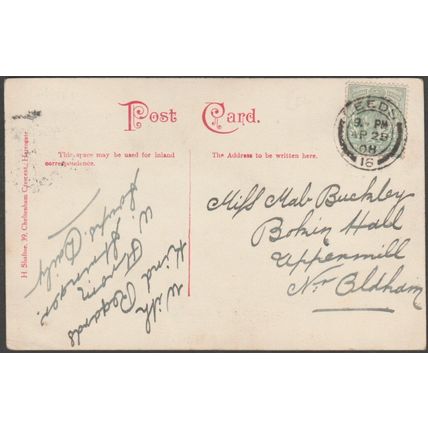 Post Card.
This space may be used for inland
correspondence.
The Address to be written here.
H Shelton, 39, Cheltenham Crescent, Harrogate
LEEDS
9. PM
AP 28
08
16
With
Kind Regards
from
W.
Miss Mab Buckley
Bokin Hall
Uppermill
Nr Oldham